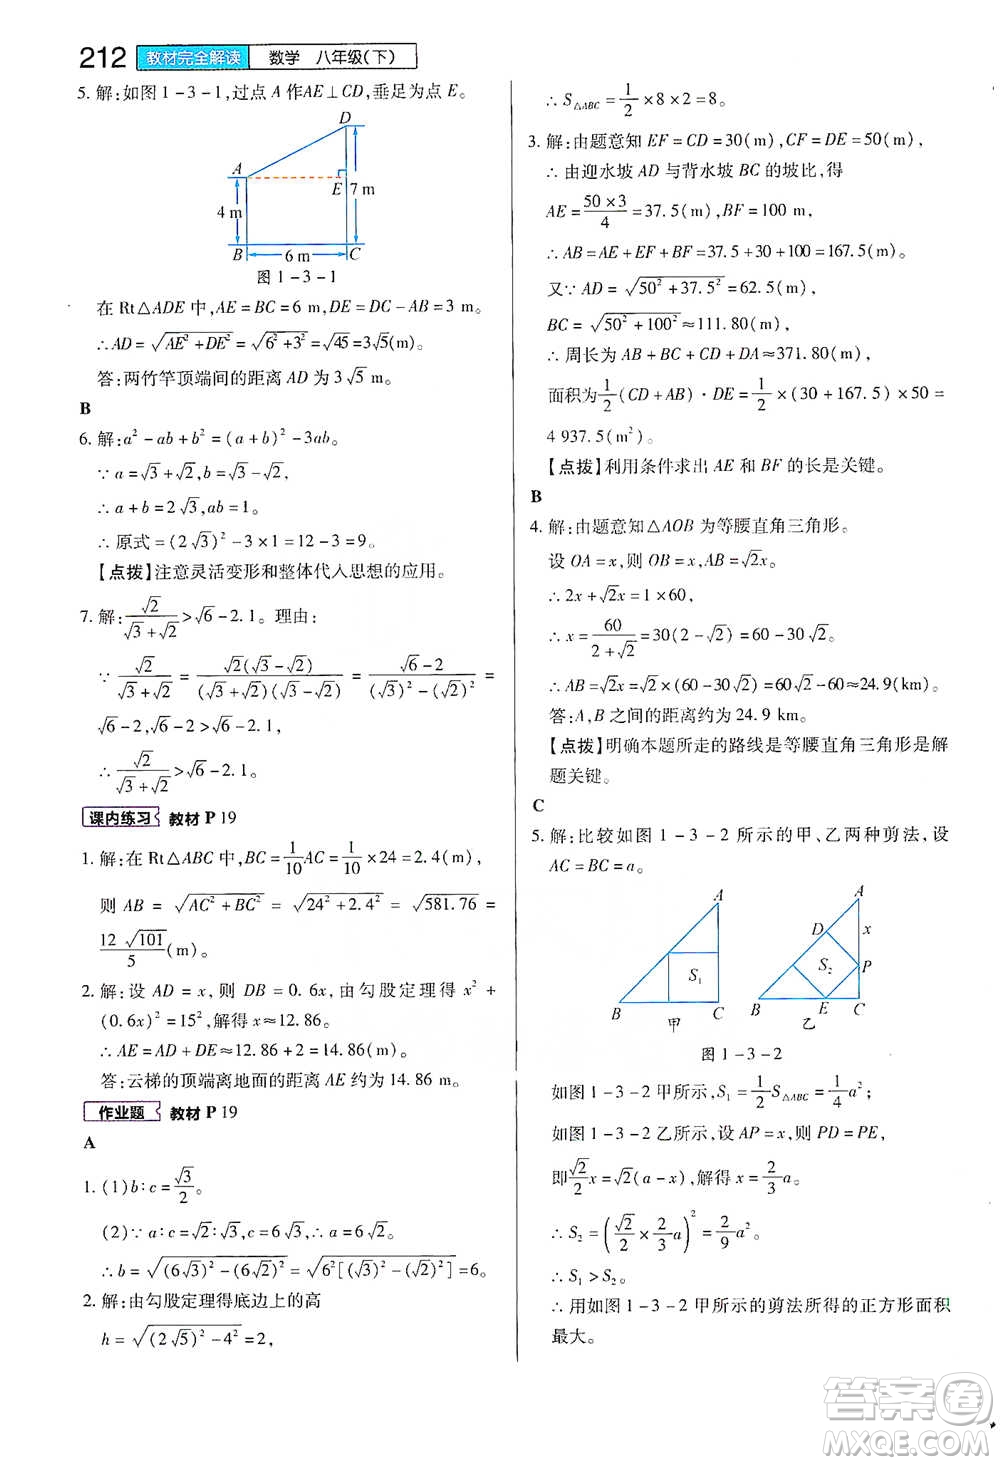 212 教材完全解读 数学 八年级(下)
5. 解:如图1-3-1,过点A作AE⊥CD,垂足为点E。
D
A
E 7 m
4 m
B 6 m C
图1-3-1
在Rt△ADE中,AE=BC=6 m,DE=DC-AB=3 m。
∴AD=√(AE²+DE²)=√(6²+3²)=√45=3√5(m)。
答:两竹竿顶端间的距离AD为3√5 m。
B
6. 解:a²-ab+b²=(a+b)²-3ab。
∵a=√3+√2,b=√3-√2,
∴a+b=2√3,ab=1。
∴原式=(2√3)²-3×1=12-3=9。
【点拨】注意灵活变形和整体代入思想的应用。
7. 解:√2/(√3+√2)>√6-2.1。理由:
∵√2/(√3+√2)=√2(√3-√2)/((√3+√2)(√3-√2))=(√6-2)/((√3)²-(√2)²)=
√6-2,√6-2>√6-2.1,
∴√2/(√3+√2)>√6-2.1。
课内练习 教材P19
1. 解:在Rt△ABC中,BC=1/10AC=1/10×24=2.4(m),
则AB=√(AC²+BC²)=√(24²+2.4²)=√581.76=
12√101/5(m)。
2. 解:设AD=x,则DB=0.6x,由勾股定理得x²+
(0.6x)²=15²,解得x≈12.86。
∴AE=AD+DE≈12.86+2=14.86(m)。
答:云梯的顶端离地面的距离AE约为14.86 m。
作业题 教材P19
A
1. (1)b∶c=√3/2。
(2)∵a∶c=√2∶√3,c=6√3,∴a=6√2。
∴b=√((6√3)²-(6√2)²)=√(6²[(√3)²-(√2)²])=6。
2. 解:由勾股定理得底边上的高
h=√((2√5)²-4²)=2,
∴S△ABC=1/2×8×2=8。
3. 解:由题意知EF=CD=30(m),CF=DE=50(m)。
∴由迎水坡AD与背水坡BC的坡比,得
AE=50×3/4=37.5(m),BF=100 m,
∴AB=AE+EF+BF=37.5+30+100=167.5(m)。
又∵AD=√(50²+37.5²)=62.5(m),
BC=√(50²+100²)≈111.80(m),
∴周长为AB+BC+CD+DA≈371.80(m),
面积为1/2(CD+AB)·DE=1/2×(30+167.5)×50=
4 937.5(m²)。
【点拨】利用条件求出AE和BF的长是关键。
B
4. 解:由题意知△AOB为等腰直角三角形。
设OA=x,则OB=x,AB=√2x。
∴2x+√2x=1×60,
∴x=60/(2+√2)=30(2-√2)=60-30√2,
∴AB=√2x=√2×(60-30√2)=60√2-60≈24.9(km)。
答:A,B之间的距离约为24.9 km。
【点拨】明确本题所走的路线是等腰直角三角形是解
题关键。
C
5. 解:比较如图1-3-2所示的甲、乙两种剪法,设
AC=BC=a。
A
S₁
B 甲 C
A
D x
S₂ P
B E C
乙
图1-3-2
如图1-3-2甲所示,S₁=1/2S△ABC=1/4a²。
如图1-3-2乙所示,设AP=x,则PD=PE,
即√2/2x=√2(a-x),解得x=2/3a。
∴S₂=(√2/2×2/3a)²=2/9a²。
∴S₁>S₂。
∴用如图1-3-2甲所示的剪法所得的正方形面积
最大。
答案圈
MXQE.COM